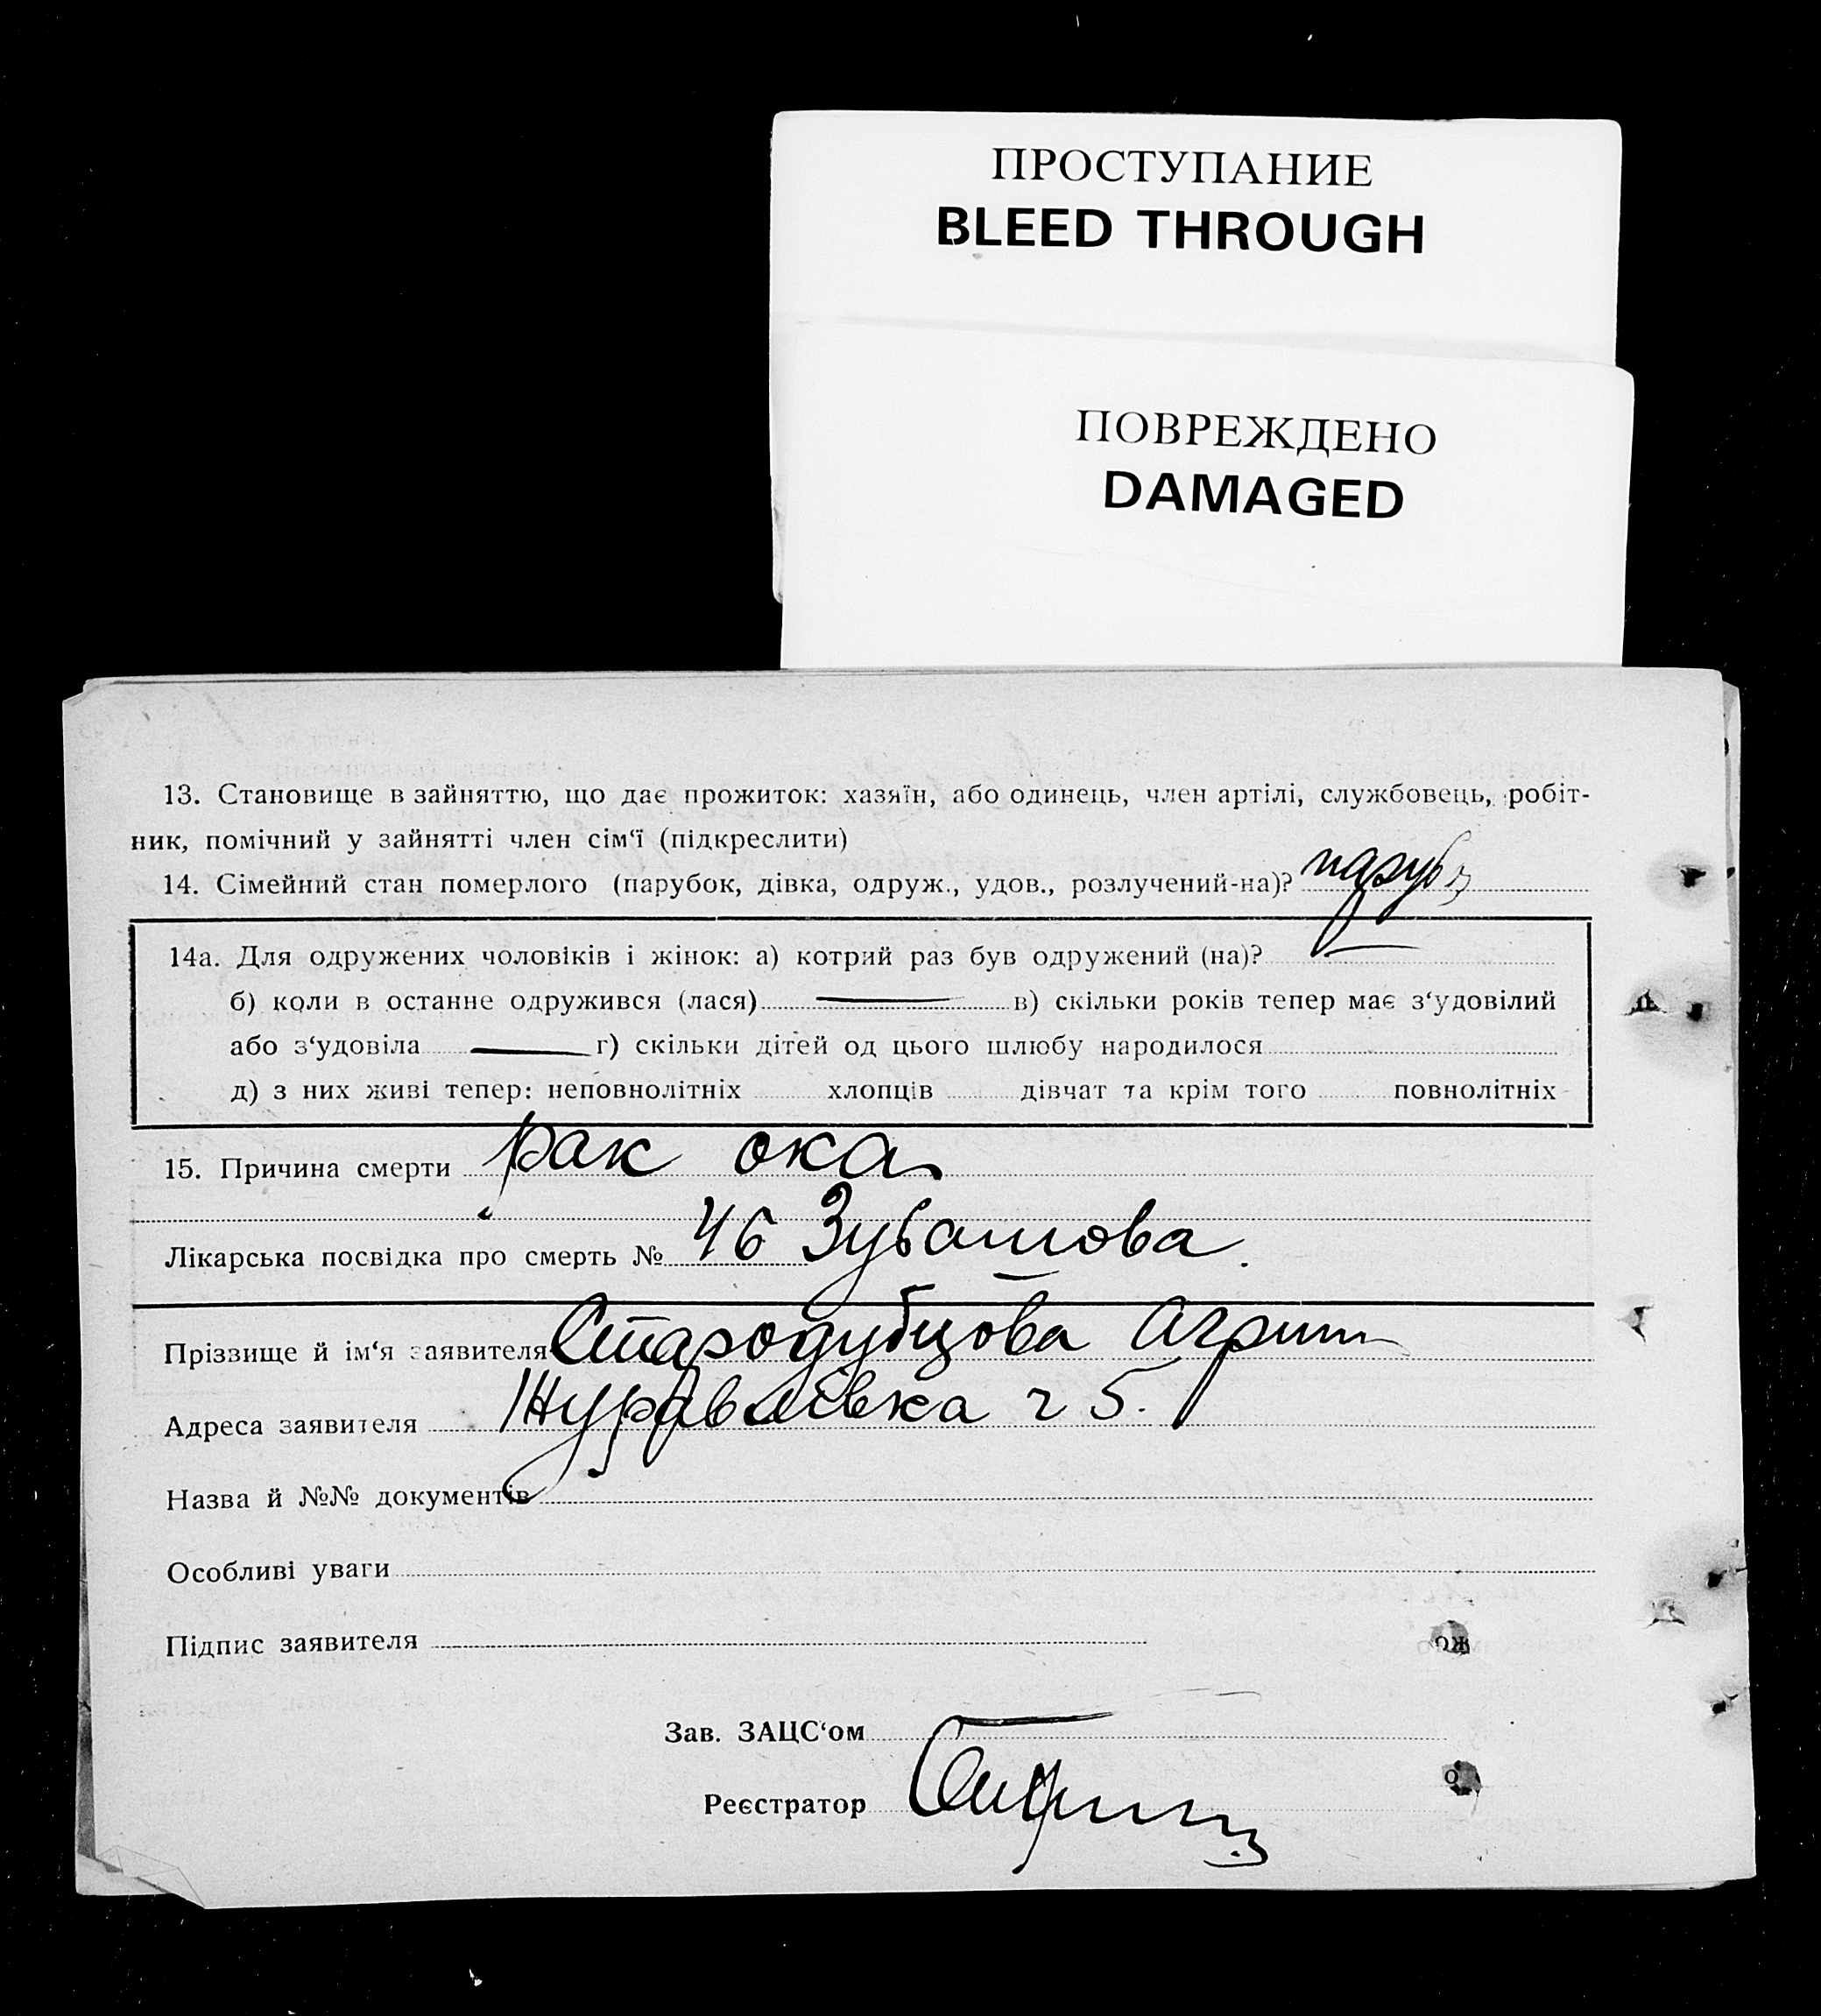 ПРОСТУПАНИЕ
BLEED THROUGH
ПОВРЕЖДЕНО
DAMAGED
13. Становище в зайняттю, що дає прожиток: хазяїн, або одинець, член артілі, службовець, робіт-
ник, помічний у зайнятті член сім‘ї (підкреслити)
14. Сімейний стан померлого (парубок, дівка, одруж., удов., розлучений-на)? паруб
14а. Для одружених чоловіків і жінок: а) котрий раз був одружений (на)?
б) коли в останне одружився (лася) в) скільки років тепер має з‘удовілий
або з‘удовіла г) скільки дітей од цього шлюбу народилося
д) з них живі тепер: неповнолітніх хлопців дівчат та крім того повнолітніх
15. Причина смерти рак ока
Лікарська посвідка про смерть № 46 Зубашова
Прізвище й ім‘я заявителя Стародубцова Агрип
Адреса заявителя Журавлівка 25.
Назва й №№ документів
Особливі уваги
Підпис заявителя
Зав. ЗАЦС‘ом
Реєстратор